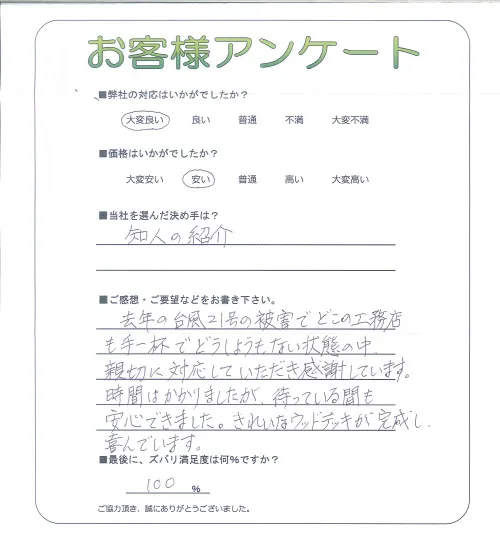 お客様アンケート
■弊社の対応はいかがでしたか?
大変良い 良い 普通 不満 大変不満
■価格はいかがでしたか?
大変安い 安い 普通 高い 大変高い
■当社を選んだ決め手は?
知人の紹介
■ご感想・ご要望などをお書き下さい。
去年の台風21号の被害でどこの工務店
も手一杯でどうしようもない状態の中、
親切に対応していただき感謝しています。
時間はかかりましたが、待っている間も
安心できました。きれいなウッドデッキが完成し、
喜んでいます。
■最後に、ズバリ満足度は何%ですか?
100 %
ご協力頂き、誠にありがとうございました。